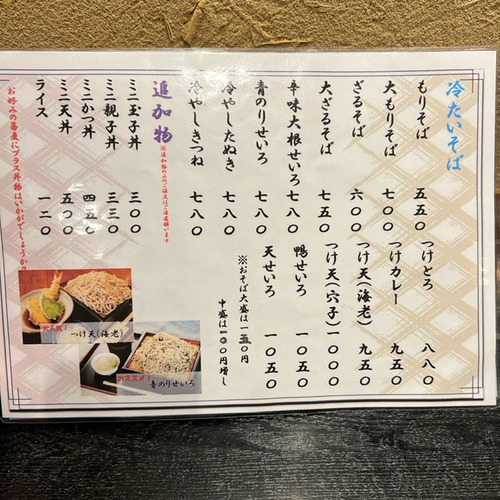 冷たいそば
もりそば 五五〇
大もりそば 七〇〇
ざるそば 六〇〇
大ざるそば 七五〇
辛味大根せいろ 七八〇
青のりせいろ 七八〇
冷やしたぬき 七八〇
冷やしきつね 七八〇
つけとろ 八八〇
つけカレー 九五〇
つけ天(海老) 九五〇
つけ天(穴子) 一〇〇〇
鴨せいろ 一〇五〇
天せいろ 一〇五〇
※おそば大盛は一五〇円
中盛は一〇〇円増し
追加物
※追加物のみのご注文はご遠慮願います
ミニ玉子丼 三〇〇
ミニ親子丼 三三〇
ミニかつ丼 四五〇
ミニ天丼 五〇〇
ライス 一二〇
お好みの蕎麦にプラス丼物はいかがでしょうか?
大人気!
つけ天(海老)
オススメ!
青のりせいろ